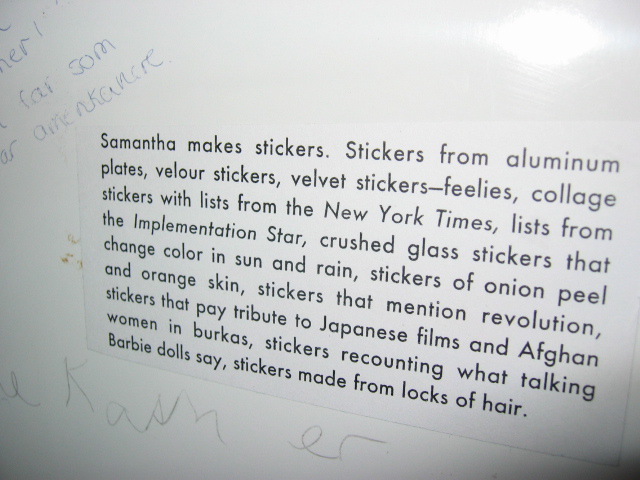 far som
Samantha makes stickers. Stickers from aluminum
plates, velour stickers, velvet stickers–feelies, collage
stickers with lists from the New York Times, lists from
the Implementation Star, crushed glass stickers that
change color in sun and rain, stickers of onion peel
and orange skin, stickers that mention revolution,
stickers that pay tribute to Japanese films and Afghan
women in burkas, stickers recounting what talking
Barbie dolls say, stickers made from locks of hair.
er